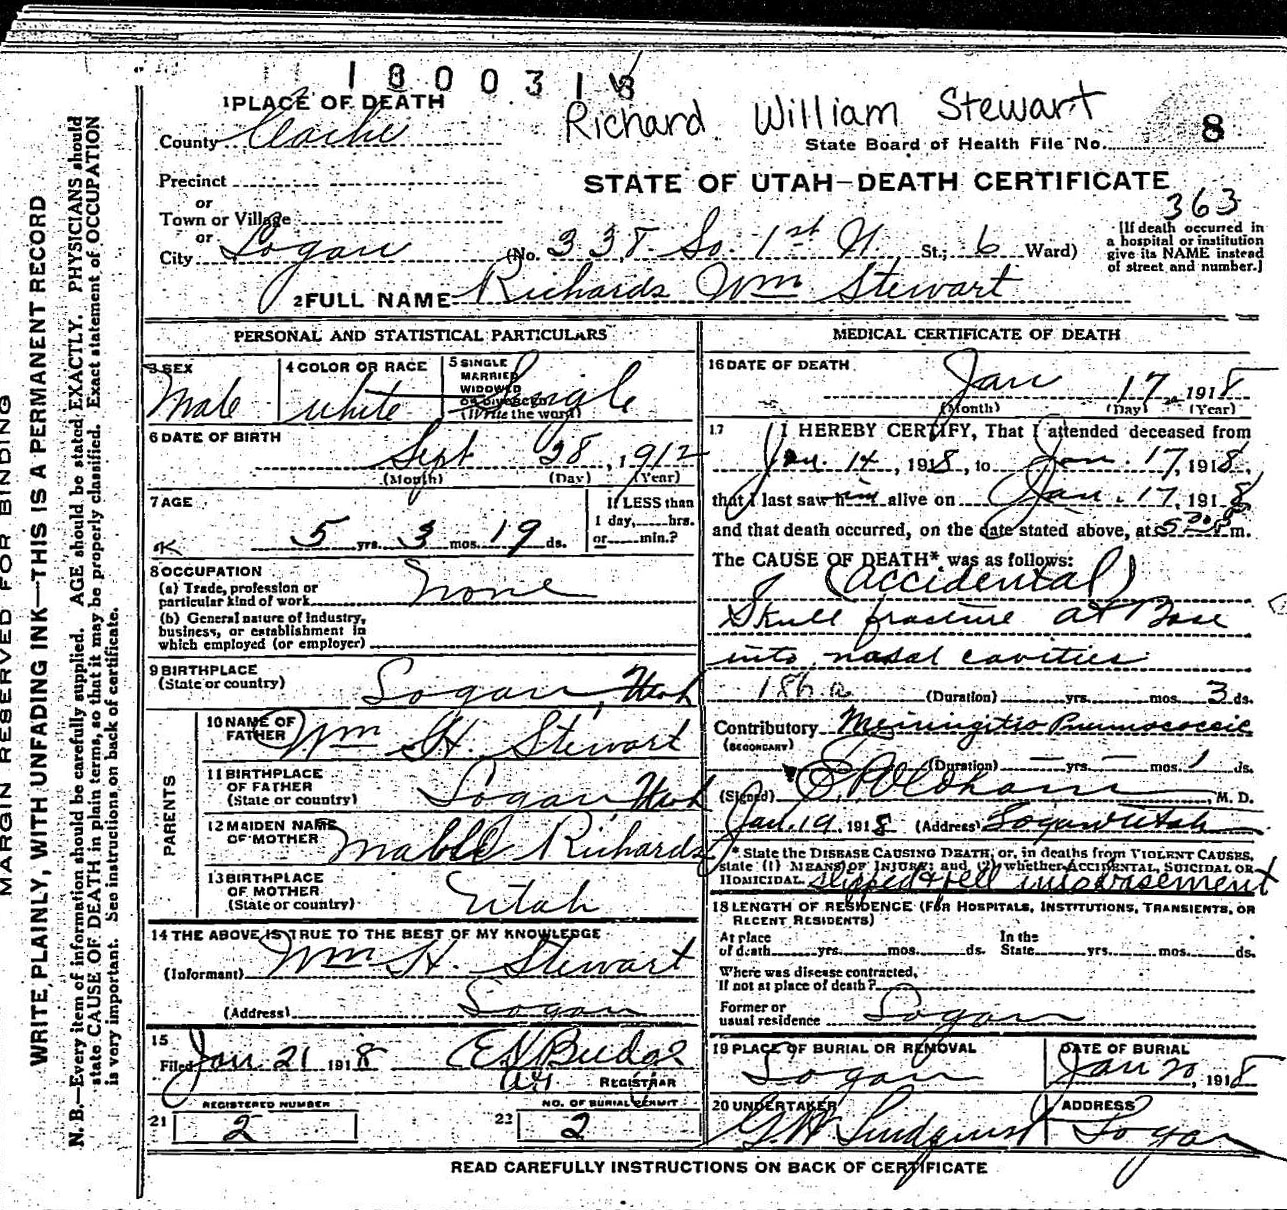 1800318
1 PLACE OF DEATH
Richard William Stewart
County Cache
State Board of Health File No. 8
Precinct
STATE OF UTAH—DEATH CERTIFICATE
or
363
Town or Village
or
City Logan (No. 338 So. 1st W St.; 6 Ward)
[If death occurred in
a hospital or institution
give its NAME instead
of street and number.]
2 FULL NAME Richards Wm Stewart
PERSONAL AND STATISTICAL PARTICULARS
3 SEX
Male
4 COLOR OR RACE
White
5 SINGLE
MARRIED
WIDOWED
OR DIVORCED
(Write the word)
Single
6 DATE OF BIRTH
Sept 28, 1912
(Month) (Day) (Year)
7 AGE
5 yrs. 3 mos. 19 ds.
If LESS than
1 day, hrs.
or min.?
8 OCCUPATION
(a) Trade, profession or
particular kind of work None
(b) General nature of Industry,
business, or establishment in
which employed (or employer)
9 BIRTHPLACE
(State or country) Logan, Utah
PARENTS
10 NAME OF
FATHER Wm H. Stewart
11 BIRTHPLACE
OF FATHER
(State or country) Logan, Utah
12 MAIDEN NAME
OF MOTHER Mable Richards
13 BIRTHPLACE
OF MOTHER
(State or country) Utah
14 THE ABOVE IS TRUE TO THE BEST OF MY KNOWLEDGE
(Informant) Wm H. Stewart
(Address) Logan
15
Filed Jan. 21 1918
REGISTRAR
REGISTERED NUMBER
21 2
NO. OF BURIAL PERMIT
22 2
MEDICAL CERTIFICATE OF DEATH
16 DATE OF DEATH
Jan 17, 1918
(Month) (Day) (Year)
17 I HEREBY CERTIFY, That I attended deceased from
Jan. 14, 1918, to Jan. 17, 1918,
that I last saw him alive on Jan. 17, 1918
and that death occurred, on the date stated above, at m.
The CAUSE OF DEATH* was as follows:
(Accidental)
Skull fracture at Base
into nasal cavities
(Duration) yrs. mos. 3 ds.
Contributory Meningitis Pneumococcic
(SECONDARY)
(Duration) — yrs. — mos. 1 ds.
(Signed) , M. D.
Jan. 19, 1918 (Address) Logan Utah
* State the DISEASE CAUSING DEATH, or, in deaths from VIOLENT CAUSES,
state (1) MEANS OF INJURY; and (2) whether ACCIDENTAL, SUICIDAL OR
HOMICIDAL. slipped & fell into basement
18 LENGTH OF RESIDENCE (FOR HOSPITALS, INSTITUTIONS, TRANSIENTS, OR
RECENT RESIDENTS)
At place
of death yrs. mos. ds.
In the
State yrs. mos. ds.
Where was disease contracted,
if not at place of death?
Former or
usual residence Logan
19 PLACE OF BURIAL OR REMOVAL
Logan
DATE OF BURIAL
Jan 20, 1918
20 UNDERTAKER
Lindquist
ADDRESS
Logan
READ CAREFULLY INSTRUCTIONS ON BACK OF CERTIFICATE
MARGIN RESERVED FOR BINDING
WRITE PLAINLY, WITH UNFADING INK—THIS IS A PERMANENT RECORD
N. B.—Every item of information should be carefully supplied. AGE should be stated EXACTLY. PHYSICIANS should
state CAUSE OF DEATH in plain terms, so that it may be properly classified. Exact statement of OCCUPATION
is very important. See instructions on back of certificate.